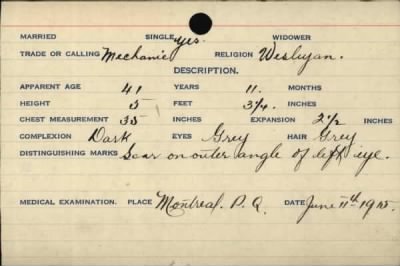 MARRIED SINGLE yes. WIDOWER
TRADE OR CALLING Mechanic RELIGION Wesleyan.
DESCRIPTION.
APPARENT AGE 41 YEARS 11. MONTHS
HEIGHT 5 FEET 3 3/4. INCHES
CHEST MEASUREMENT 35 INCHES EXPANSION 2 1/2 INCHES
COMPLEXION Dark EYES Grey HAIR Grey
DISTINGUISHING MARKS Scar on outer angle of left eye.
MEDICAL EXAMINATION. PLACE Montreal. P.Q. DATE June 11th 1915.